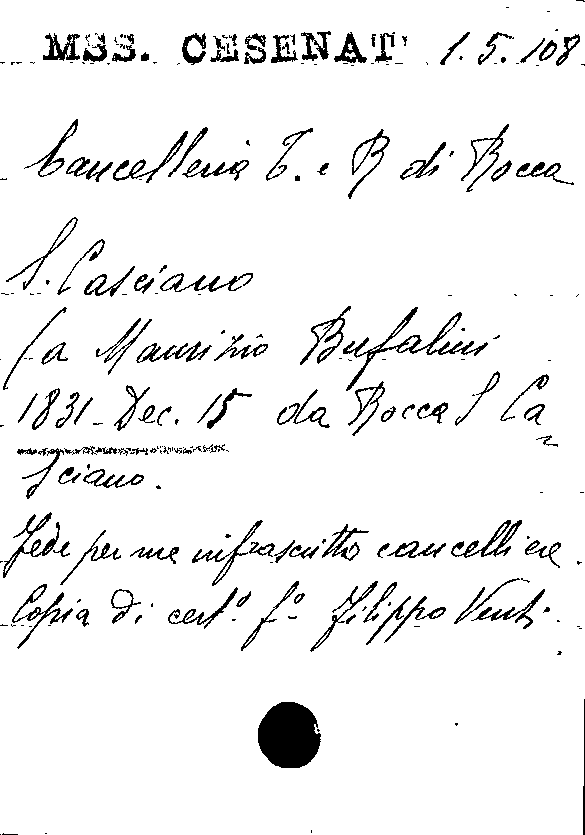 MSS. CESENAT 1.5.108
Cancelleria T. e R di Rocca
S. Casciano
(a Maurizio Bufalini
1831 - Dec. 15 da Rocca S Ca
sciano.
Fede per me infrascritto cancelliere.
Copia di cert.º fº Filippo Venti